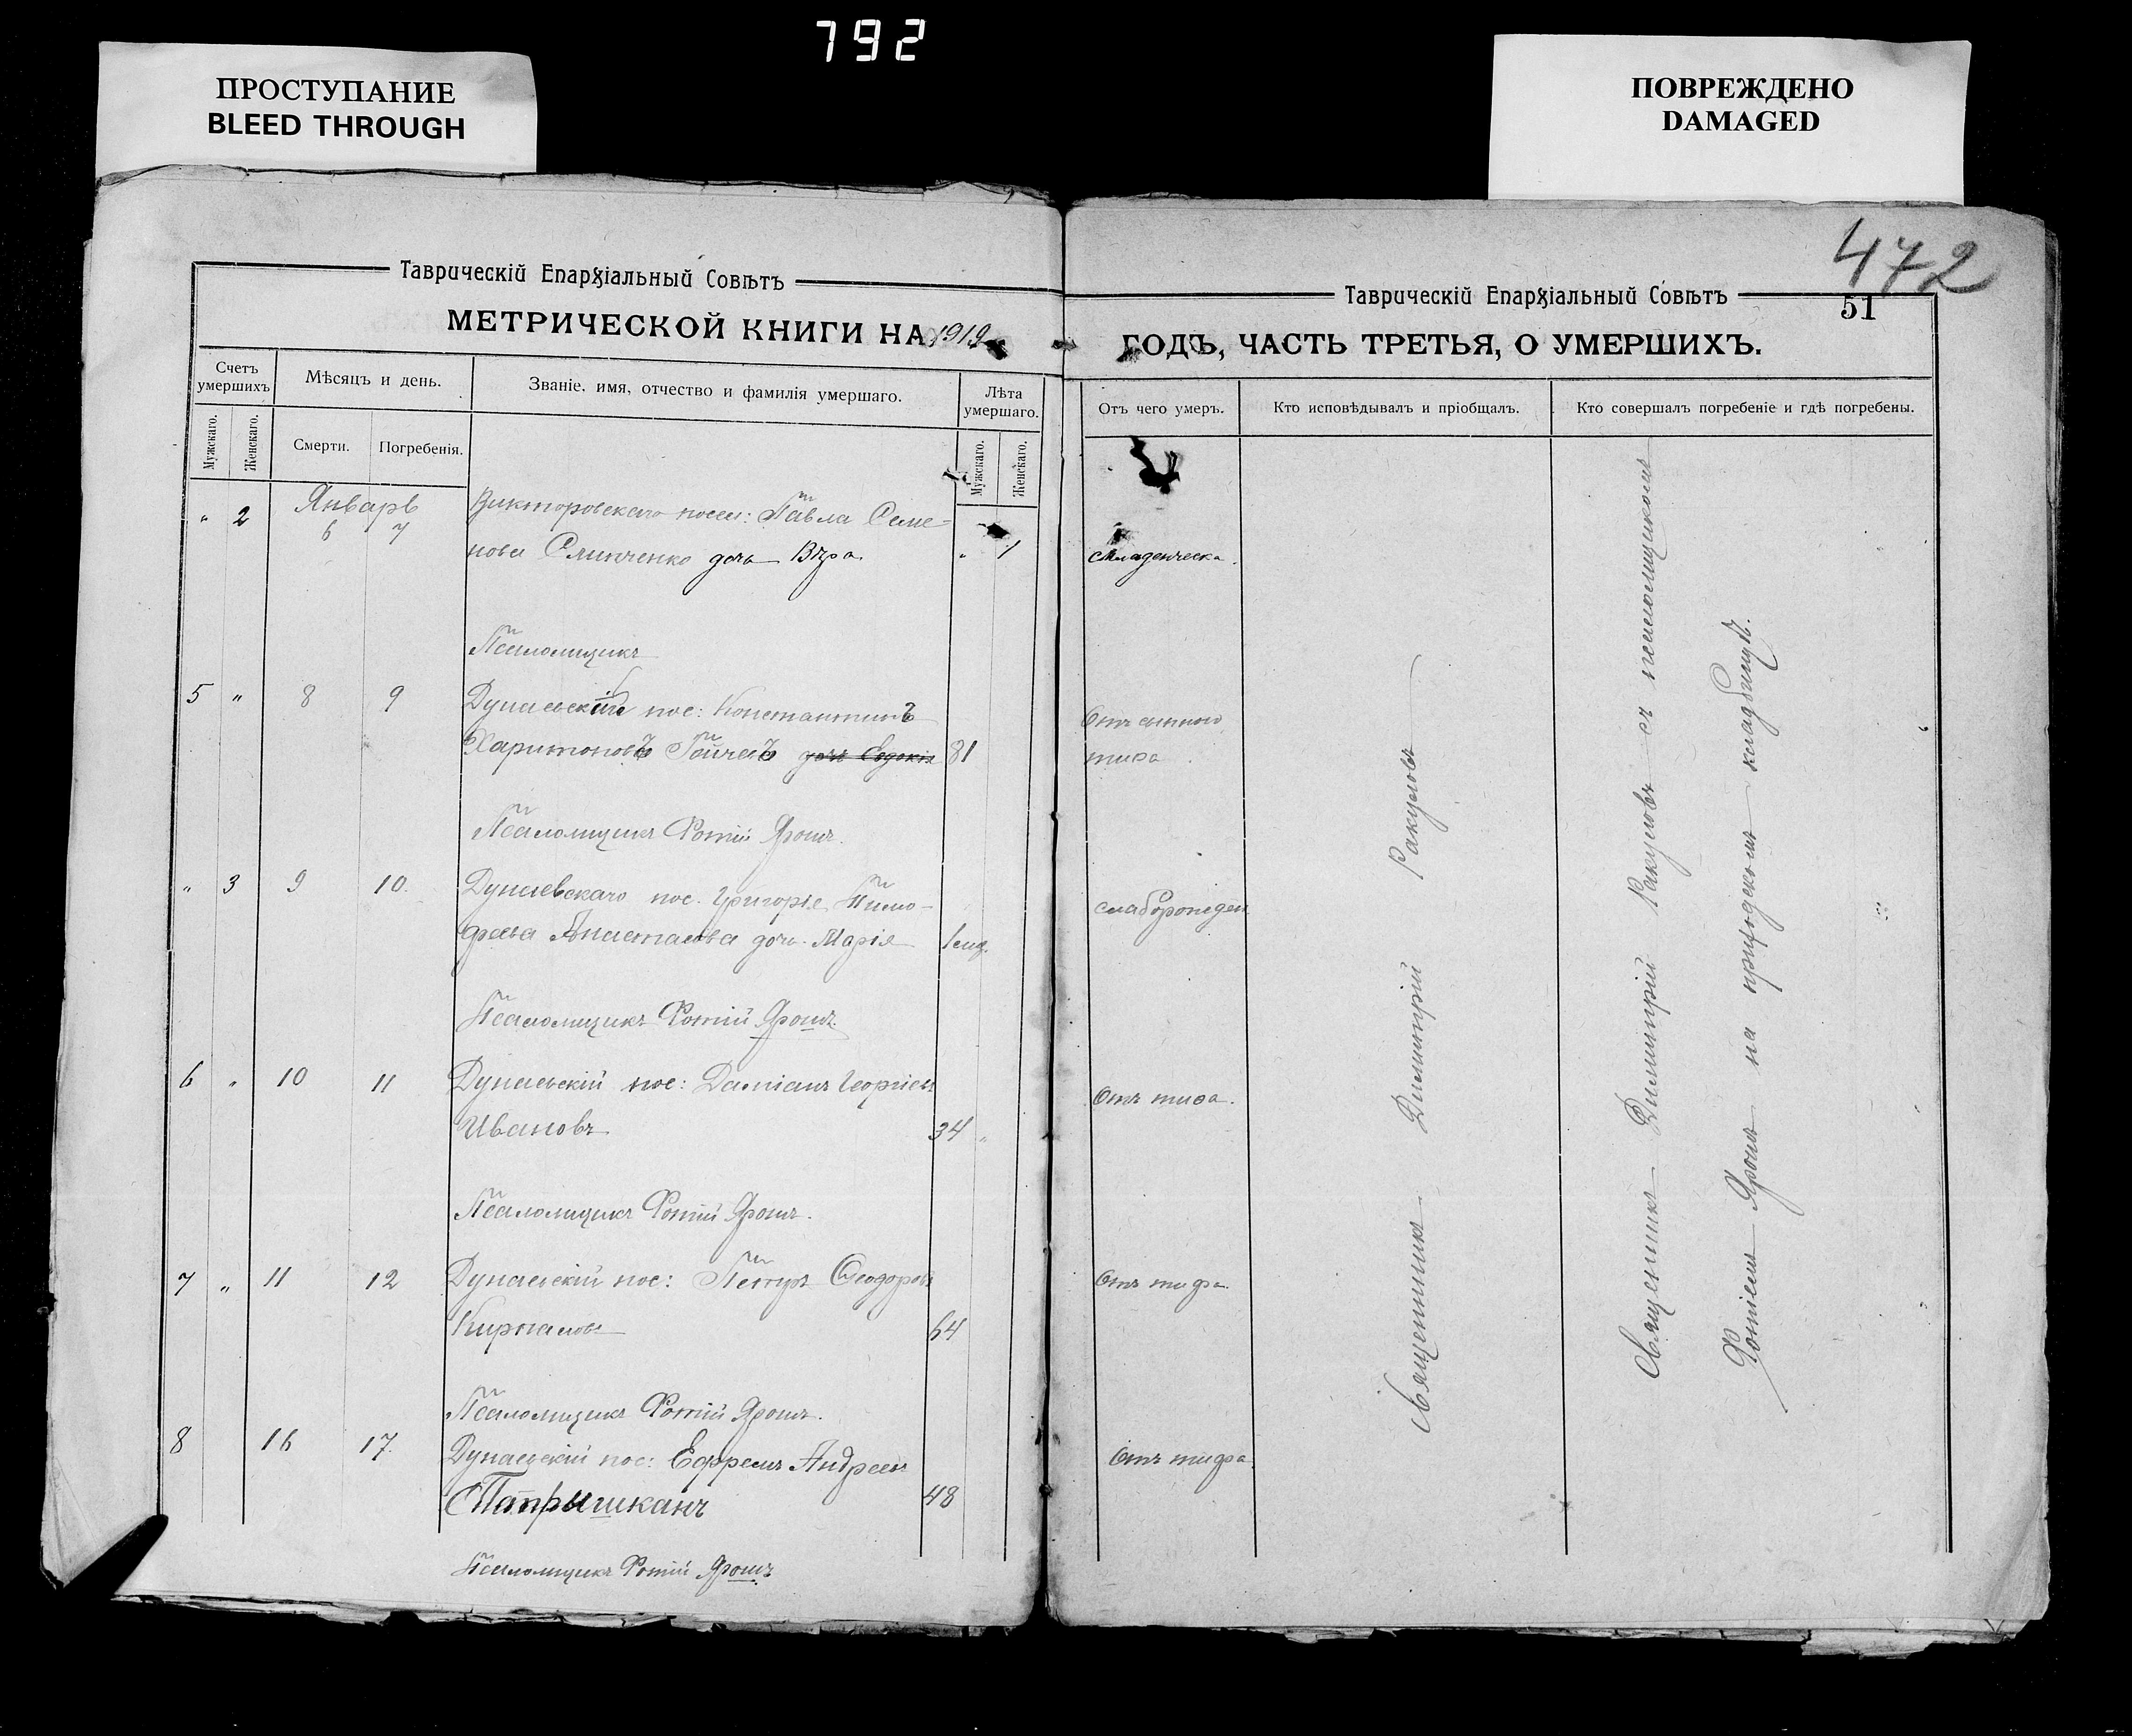 792
ПРОСТУПАНИЕ
BLEED THROUGH
ПОВРЕЖДЕНО
DAMAGED
472
Таврическій Епархіальный Совѣтъ
МЕТРИЧЕСКОЙ КНИГИ НА 1919
Счетъ умершихъ
Мѣсяцъ и день.
Званіе, имя, отчество и фамилія умершаго.
Лѣта умершаго.
Мужскаго.
Женскаго.
Смерти.
Погребенія.
Мужскаго.
Женскаго.
" 2 Январь 6 7 Викторовскаго посел: Павла Семе-
нова Слинченко дочь Вѣра " 1
Псаломщикъ
5 " 8 9 Дунаевскій пос: Константинъ
Харитоновъ дочь Евдокія 81
Псаломщикъ Фотій Ярошъ.
" 3 9 10. Дунаевскаго пос. Григорія Тимо-
феева Анастасова дочь Марія 1
Псаломщикъ Фотій Ярошъ.
6 " 10 11 Дунаевскій пос: Даміанъ Георгіев
Ивановъ 34 "
Псаломщикъ Фотій Ярошъ.
7 " 11 12 Дунаевскій пос: Петръ Ѳеодоровъ
64
Псаломщикъ Фотій Ярошъ.
8 16 17. Дунаевскій пос: Ефремъ Андреевъ
48
Псаломщикъ Фотій Ярошъ
Таврическій Епархіальный Совѣтъ
51
ГОДЪ, ЧАСТЬ ТРЕТЬЯ, О УМЕРШИХЪ.
Отъ чего умеръ.
Кто исповѣдывалъ и пріобщалъ.
Кто совершалъ погребеніе и гдѣ погребены.
Младенческа.
Отъ сыпного
тифа
слаборожден
Отъ тифа.
Отъ тифа.
Отъ тифа
Священникъ Димитрій Ракуловъ
Священникъ Димитрій Ракуловъ съ псаломщикомъ
Фотіемъ Ярошъ на приходскомъ кладбищѣ.